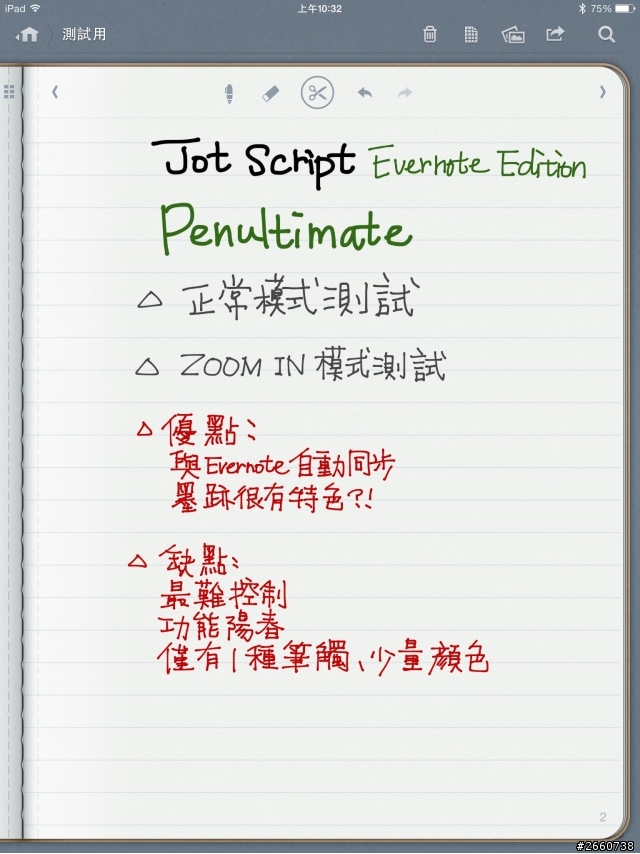 iPad 上午10:32 75%
測試用
Jot Script Evernote Edition
Penultimate
△ 正常模式測試
△ ZOOM IN 模式測試
△ 優點：
與Evernote自動同步
墨跡很有特色?!
△ 缺點：
最難控制
功能陽春
僅有1種筆觸、少量顏色
2
#2660738